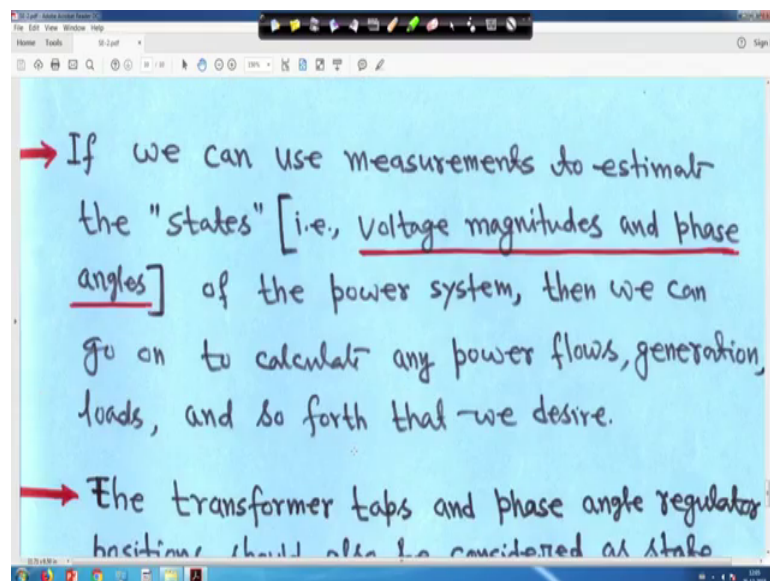 SE-2.pdf - Adobe Acrobat Reader DC
File Edit View Window Help
Home Tools SE-2.pdf × Sign
If we can use measurements to estimat
the "states" [i.e., voltage magnitudes and phase
angles] of the power system, then we can
go on to calculat any power flows, generation,
loads, and so forth that we desire.
The transformer taps and phase angle regulator
positions should also be considered as state